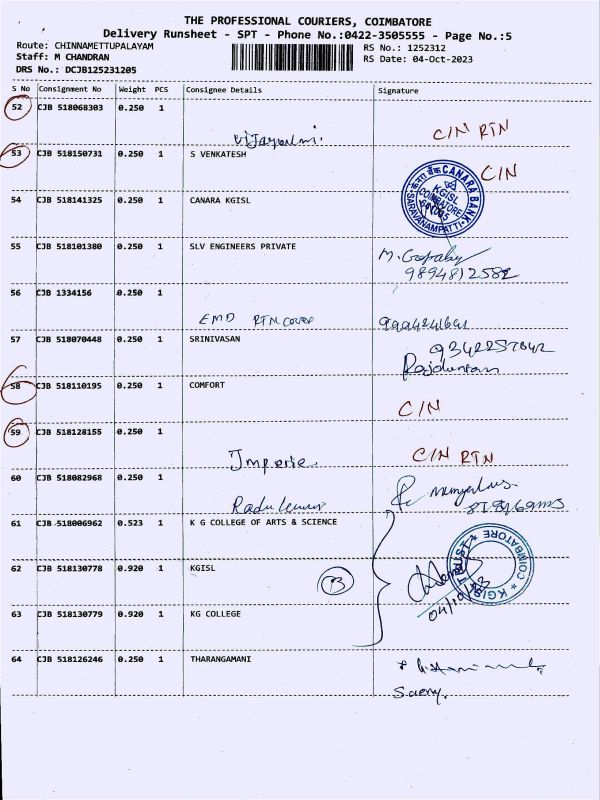 THE PROFESSIONAL COURIERS, COIMBATORE
Delivery Runsheet - SPT - Phone No.:0422-3505555 - Page No.:5
Route: CHINNAMETTUPALAYAM RS No.: 1252312
Staff: M CHANDRAN RS Date: 04-Oct-2023
DRS No.: DCJB125231205
S No Consignment No Weight PCS Consignee Details Signature
52 CJB 518068303 0.250 1
C/N RTN
53 CJB 518150731 0.250 1 S VENKATESH C/N
54 CJB 518141325 0.250 1 CANARA KGISL
CANARA BANK
KGISL
COIMBATORE
SARAVANAMPATTI
55 CJB 518101380 0.250 1 SLV ENGINEERS PRIVATE
9894812582
56 CJB 1334156 0.250 1
EMD RTN COVER
57 CJB 518070448 0.250 1 SRINIVASAN
58 CJB 518110195 0.250 1 COMFORT
C/N
59 CJB 518128155 0.250 1
C/N RTN
60 CJB 518082968 0.250 1
61 CJB 518006962 0.523 1 K G COLLEGE OF ARTS & SCIENCE
COIMBATORE
62 CJB 518130778 0.920 1 KGISL
KGISL
63 CJB 518130779 0.920 1 KG COLLEGE
64 CJB 518126246 0.250 1 THARANGAMANI